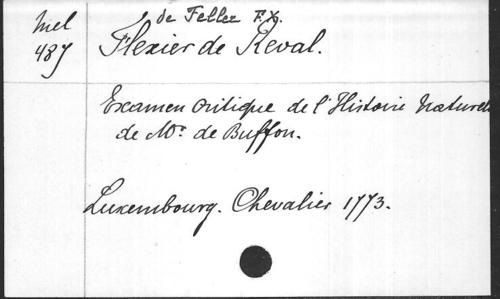 de Feller F.X.
Mel
487
Flexier de Reval.
Examen critique de l'Histoire Naturelle
de Mr. de Buffon.
Luxembourg. Chevalier 1773.